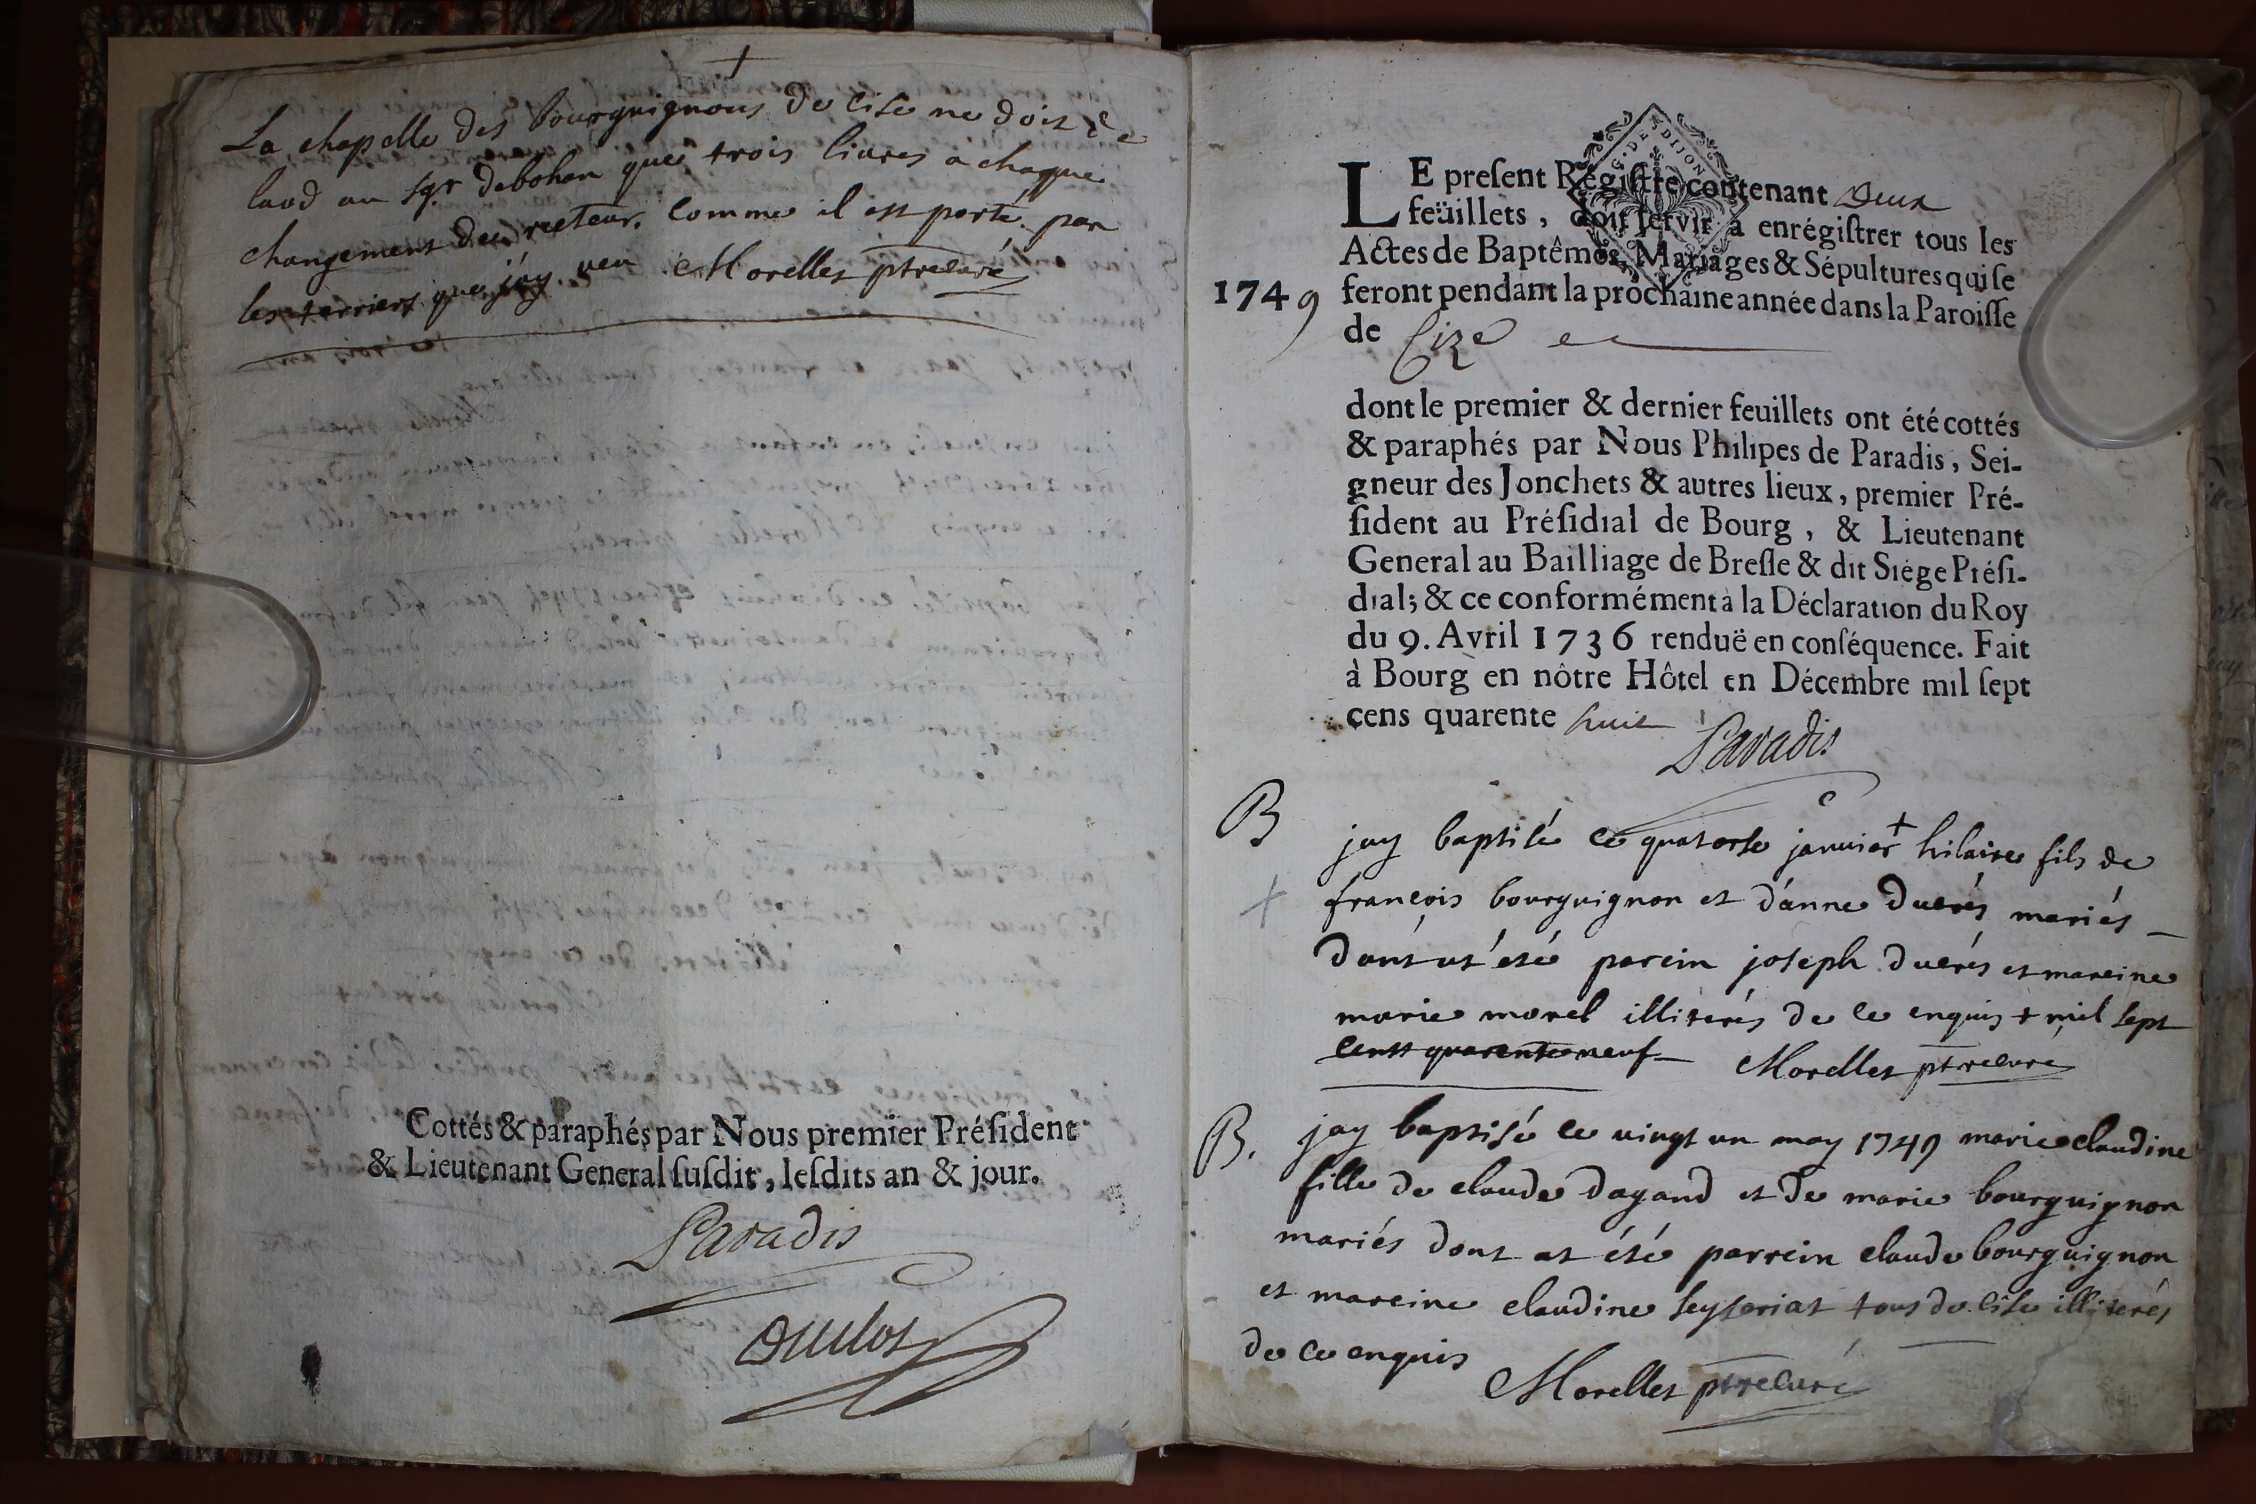 +
La chapelle des bourguignons de cise ne doit de
laod au sgr debohan que trois livres a chaque
changement de recteur. comme il est porté par
les terriers que j'ay veu Morellet ptre curé
Cottés & paraphés par Nous premier Préſident
& Lieutenant General ſuſdit, leſdits an & jour.
Paradis
G. DE DIJON
LE preſent Régiſtre contenant Deux
feüillets, doit ſervir à enrégiſtrer tous les
Actes de Baptêmes, Mariages & Sépultures qui ſe
1749 feront pendant la prochaine année dans la Paroiſſe
de Cize
dont le premier & dernier feuillets ont été cottés
& paraphés par Nous Philipes de Paradis, Sei-
gneur des Jonchets & autres lieux, premier Pré-
ſident au Préſidial de Bourg, & Lieutenant
General au Bailliage de Breſſe & dit Siége Préſi-
dial; & ce conformément à la Déclaration du Roy
du 9. Avril 1736 renduë en conſéquence. Fait
à Bourg en nôtre Hôtel en Décembre mil ſept
cens quarente huit
Paradis
B
jay baptisé ce quatorse janvier + hilaire fils de
françois bourguignon et d'anne duerés mariés
dont at été parein joseph duerés et mareine
marie morel illiterés de ce enquis + mil sept
cents quarente neuf Morellet ptre curé
B. jay baptisé ce vingt un may 1749 marie claudine
fille de claude dagand et de marie bourguignon
mariés dont at été parrein claude bourguignon
et mareine claudine seyseriat tous de cise illiterés
de ce enquis Morellet ptre curé